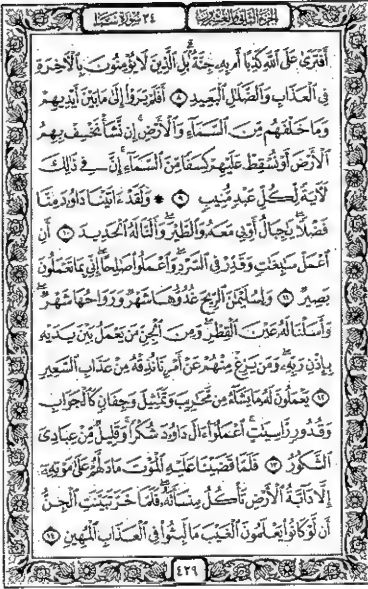 الجزء الثاني والعشرون ٣٤ سورة سبإ
أَفْتَرَىٰ عَلَى ٱللَّهِ كَذِبًا أَم بِهِۦ جِنَّةٌۢ ۗ بَلِ ٱلَّذِينَ لَا يُؤْمِنُونَ بِٱلْءَاخِرَةِ
فِى ٱلْعَذَابِ وَٱلضَّلَٰلِ ٱلْبَعِيدِ ٨ أَفَلَمْ يَرَوْا۟ إِلَىٰ مَا بَيْنَ أَيْدِيهِمْ
وَمَا خَلْفَهُم مِّنَ ٱلسَّمَآءِ وَٱلْأَرْضِ ۚ إِن نَّشَأْ نَخْسِفْ بِهِمُ
ٱلْأَرْضَ أَوْ نُسْقِطْ عَلَيْهِمْ كِسَفًا مِّنَ ٱلسَّمَآءِ ۚ إِنَّ فِى ذَٰلِكَ
لَءَايَةً لِّكُلِّ عَبْدٍ مُّنِيبٍ ٩ * وَلَقَدْ ءَاتَيْنَا دَاوُۥدَ مِنَّا
فَضْلًا ۖ يَٰجِبَالُ أَوِّبِى مَعَهُۥ وَٱلطَّيْرَ ۖ وَأَلَنَّا لَهُ ٱلْحَدِيدَ ١٠ أَنِ
ٱعْمَلْ سَٰبِغَٰتٍ وَقَدِّرْ فِى ٱلسَّرْدِ ۖ وَٱعْمَلُوا۟ صَٰلِحًا ۖ إِنِّى بِمَا تَعْمَلُونَ
بَصِيرٌ ١١ وَلِسُلَيْمَٰنَ ٱلرِّيحَ غُدُوُّهَا شَهْرٌ وَرَوَاحُهَا شَهْرٌ ۖ
وَأَسَلْنَا لَهُۥ عَيْنَ ٱلْقِطْرِ ۖ وَمِنَ ٱلْجِنِّ مَن يَعْمَلُ بَيْنَ يَدَيْهِ
بِإِذْنِ رَبِّهِۦ ۖ وَمَن يَزِغْ مِنْهُمْ عَنْ أَمْرِنَا نُذِقْهُ مِنْ عَذَابِ ٱلسَّعِيرِ
١٢ يَعْمَلُونَ لَهُۥ مَا يَشَآءُ مِن مَّحَٰرِيبَ وَتَمَٰثِيلَ وَجِفَانٍ كَٱلْجَوَابِ
وَقُدُورٍ رَّاسِيَٰتٍ ۚ ٱعْمَلُوٓا۟ ءَالَ دَاوُۥدَ شُكْرًا ۚ وَقَلِيلٌ مِّنْ عِبَادِىَ
ٱلشَّكُورُ ١٣ فَلَمَّا قَضَيْنَا عَلَيْهِ ٱلْمَوْتَ مَا دَلَّهُمْ عَلَىٰ مَوْتِهِۦٓ
إِلَّا دَآبَّةُ ٱلْأَرْضِ تَأْكُلُ مِنسَأَتَهُۥ ۖ فَلَمَّا خَرَّ تَبَيَّنَتِ ٱلْجِنُّ
أَن لَّوْ كَانُوا۟ يَعْلَمُونَ ٱلْغَيْبَ مَا لَبِثُوا۟ فِى ٱلْعَذَابِ ٱلْمُهِينِ ١٤
٤٢٩